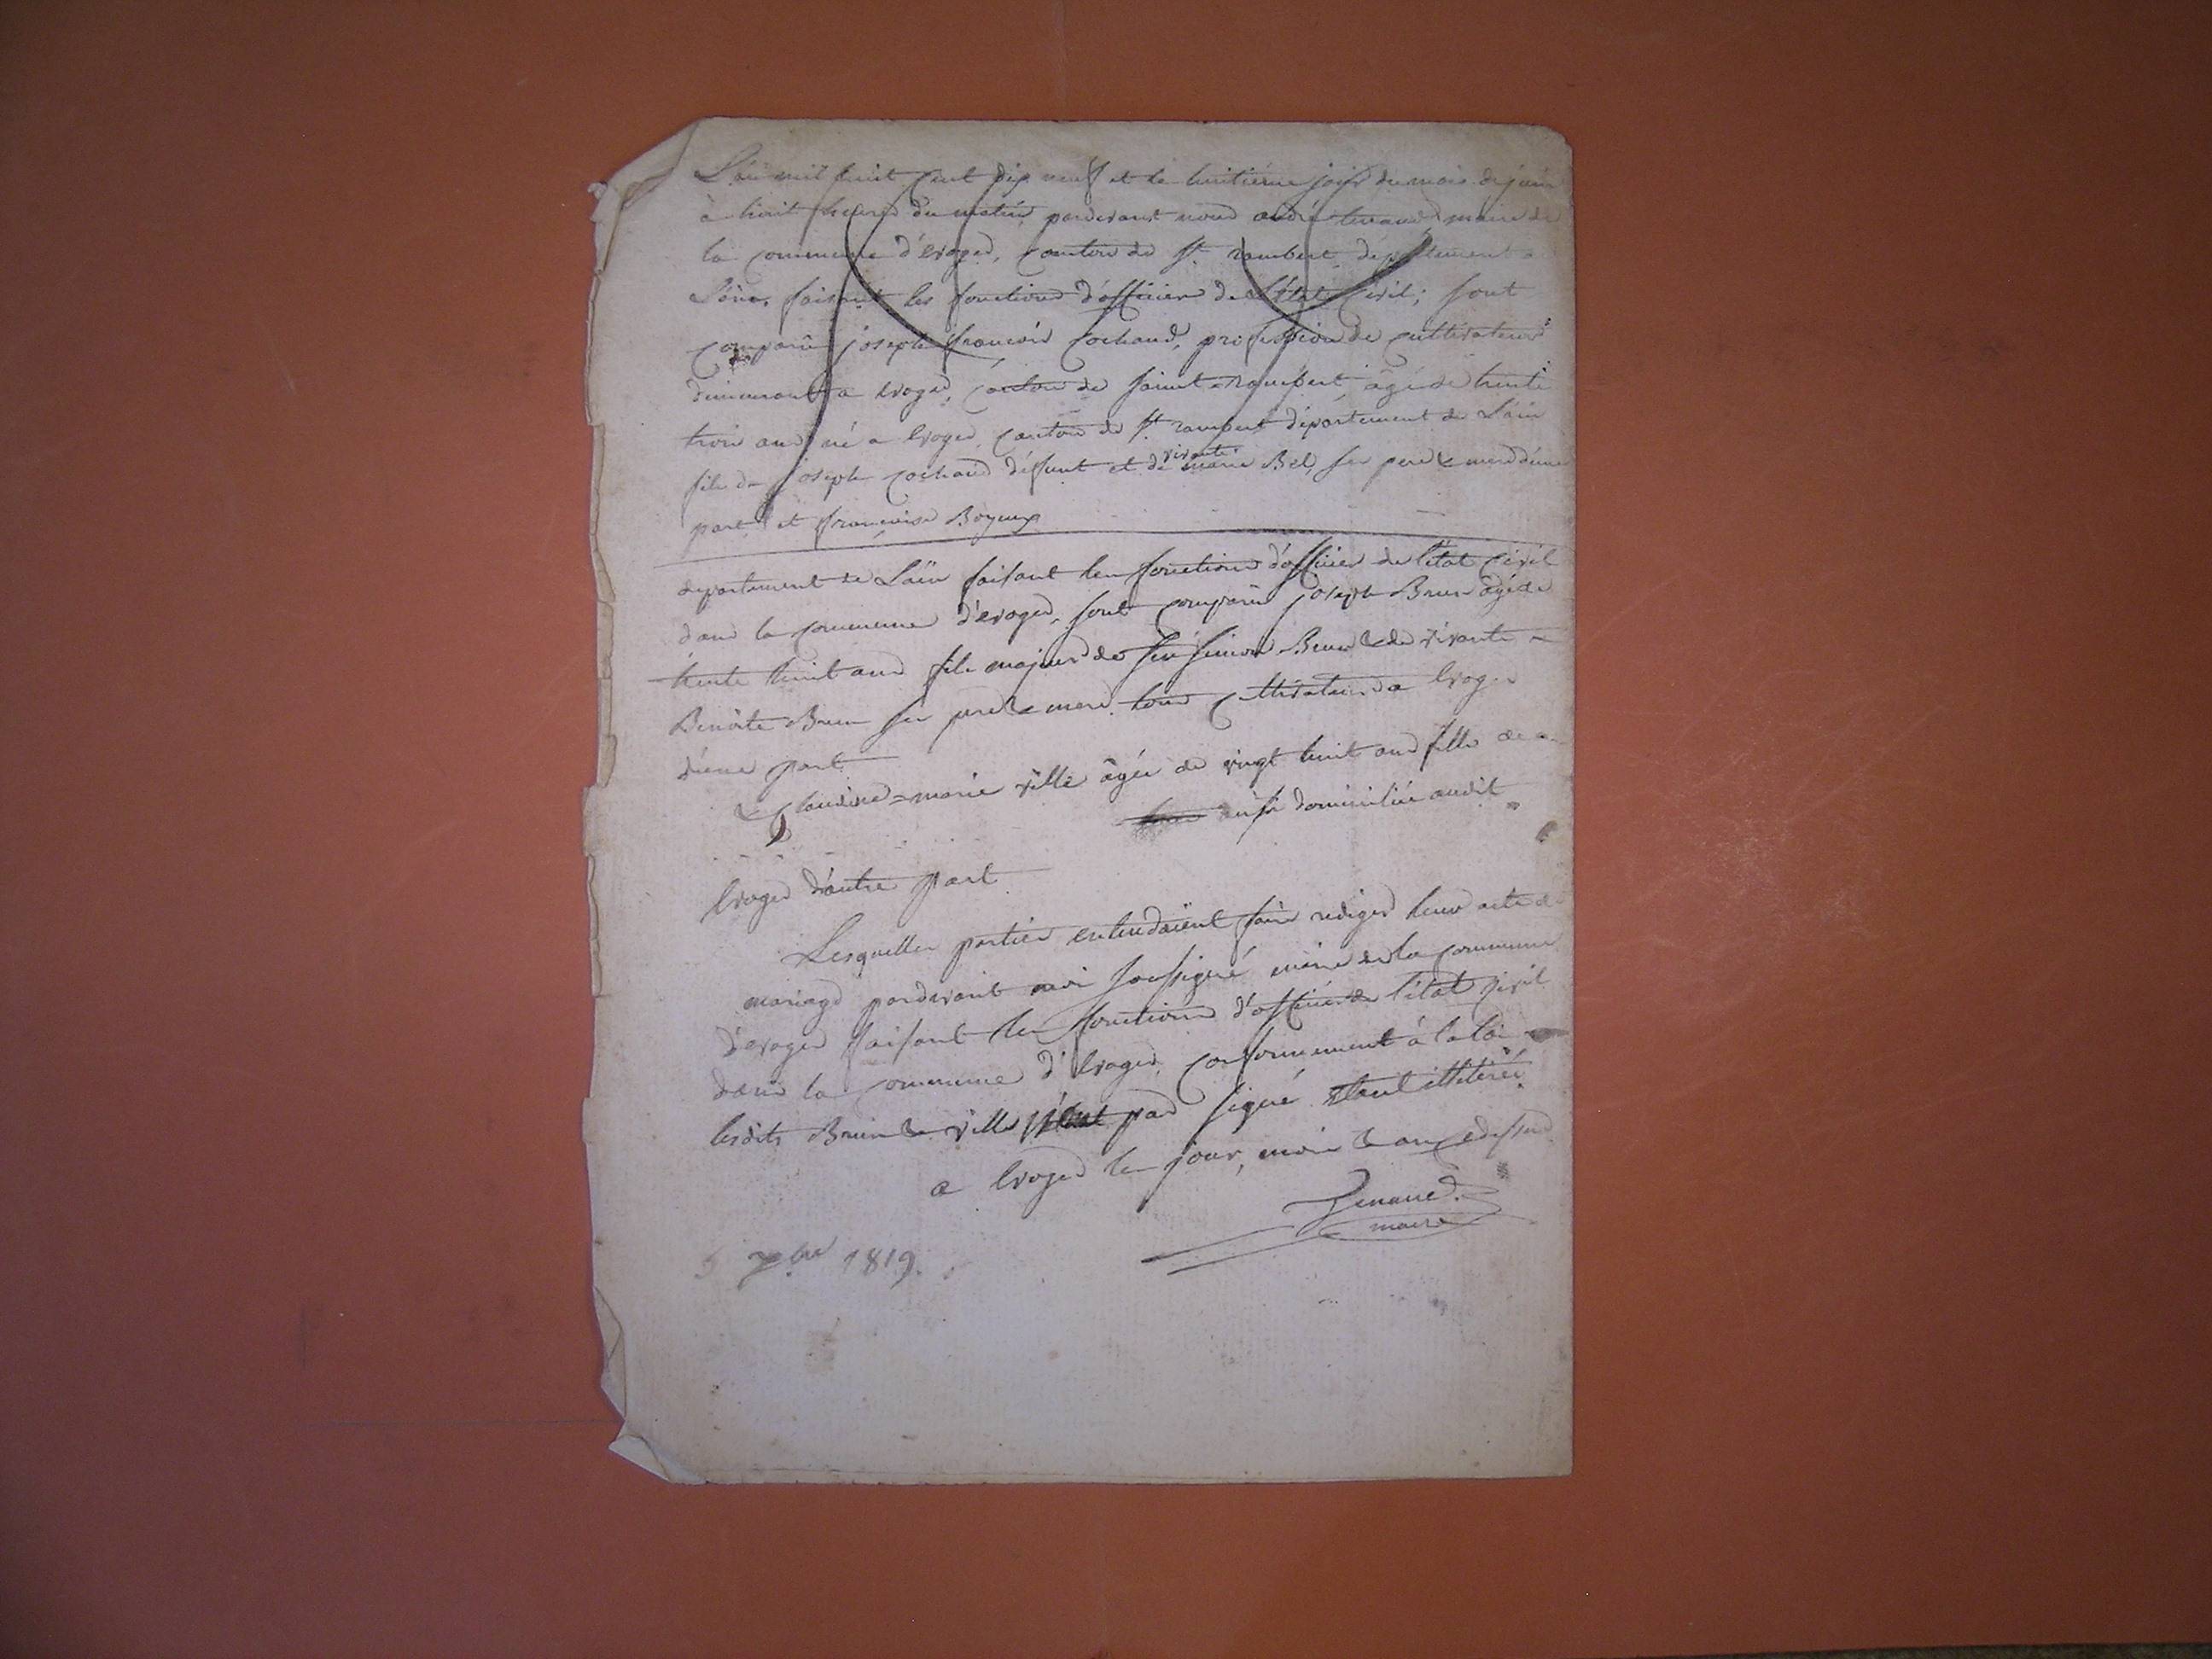 L'an mil huit cent dix neuf et le huitième jour du mois de juin
à huit heures du matin, pardevant nous andré tenand maire de
la commune d'evoges, canton de St. rambert, département de
L'ain, faisant les fonctions d'officier de L'état Civil; sont
comparus joseph françois Cochaud, profession de cultivateur
demeurant a evoges, canton de saint rambert, âgé de trente
trois ans né a evoges, canton de St. rambert département de L'ain
fils de joseph cochaud défunt et de vivante marie Bel, ses pere & mere d'une
part, et françoise Boyeux
departement de L'ain faisant les fonctions d'officier de l'état Civil
dans la commune d'evoges, sont comparus joseph Brun âgé de
trente huit ans fils majeur de feu Simon Brun & de vivante
Benoite Brun ses pere & mere tous cultivateurs a Evoges
d'une part
& Claudine=marie ville âgée de vingt huit ans fille de
aussi domiciliée audit
Evoges d'autre part
Lesquelles parties entendaient faire rediger leur acte de
mariage pardevant moi soussigné maire de la commune
d'evoges faisant les fonctions d'officier de l'état civil
dans la commune d'Evoges, conformement à la loi
lesdits Brun & ville n'ont pas signé étant illiterés.
a Evoges les jour, mois & an susdits
Tenand.
maire
5 7bre 1819.